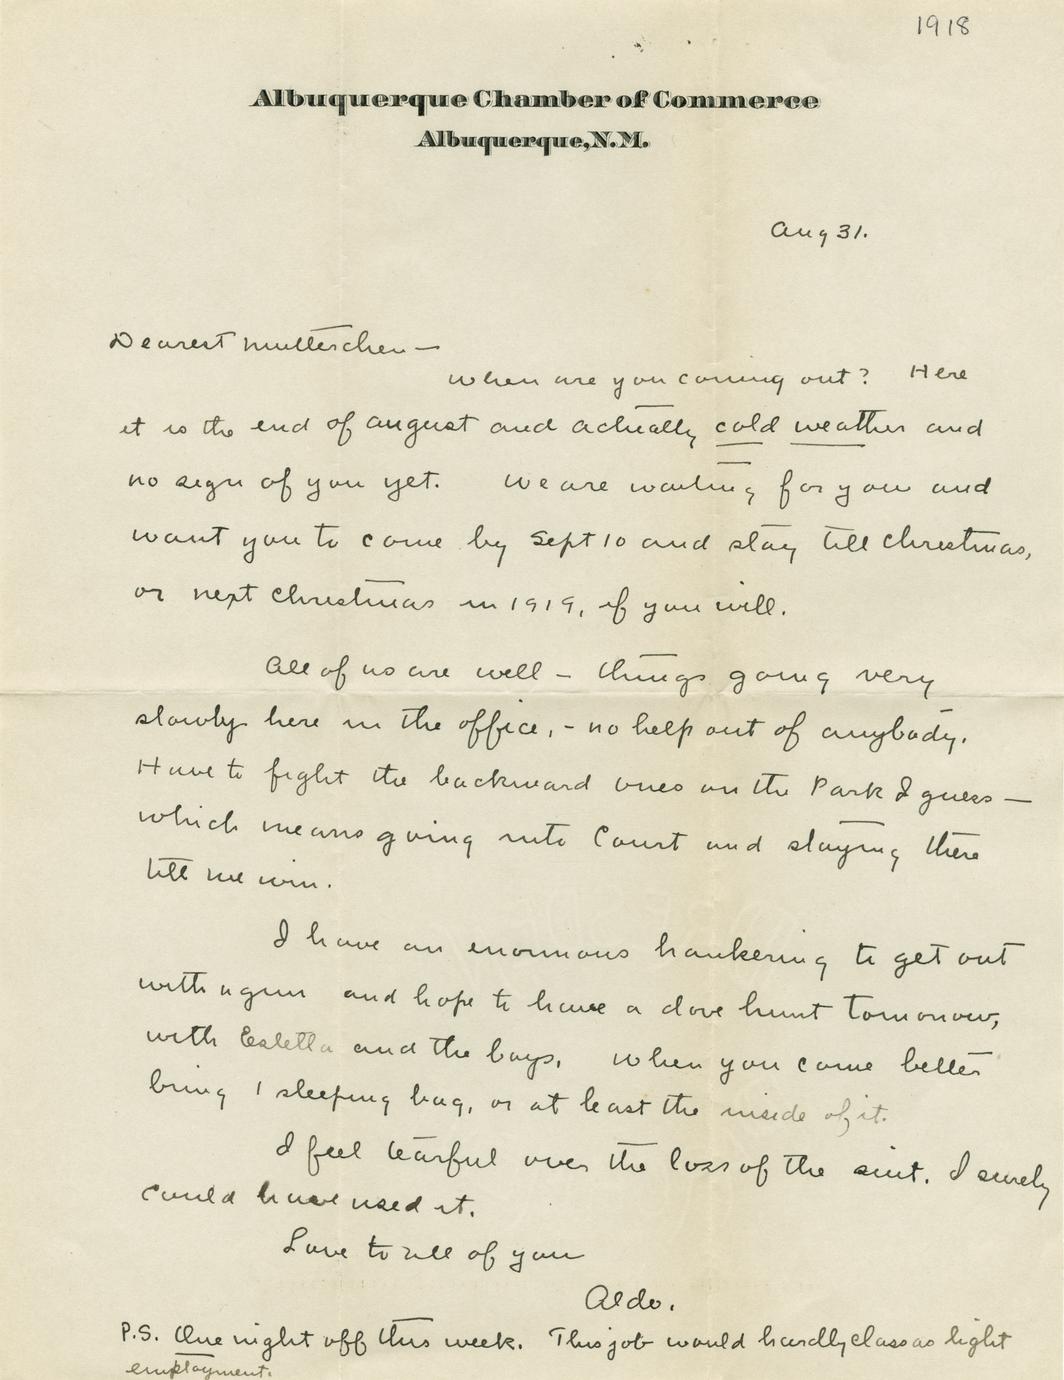 1918
Albuquerque Chamber of Commerce
Albuquerque, N.M.
Aug 31.
Dearest Mutterchen —
When are you coming out? Here
it is the end of august and actually cold weather and
no sign of you yet. We are waiting for you and
want you to come by Sept 10 and stay till Christmas,
or next Christmas in 1919, if you will.
All of us are well — things going very
slowly here in the office, - no help out of anybody.
Have to fight the backward ones on the Park I guess —
which means going into Court and staying there
till we win.
I have an enormous hankering to get out
with a gun and hope to have a dove hunt tomorrow,
with Estella and the boys. When you come better
bring 1 sleeping bag, or at least the inside of it.
I feel tearful over the loss of the suit. I surely
could have used it.
Love to all of you
Aldo.
P.S. One night off this week. This job would hardly class as light
employment.